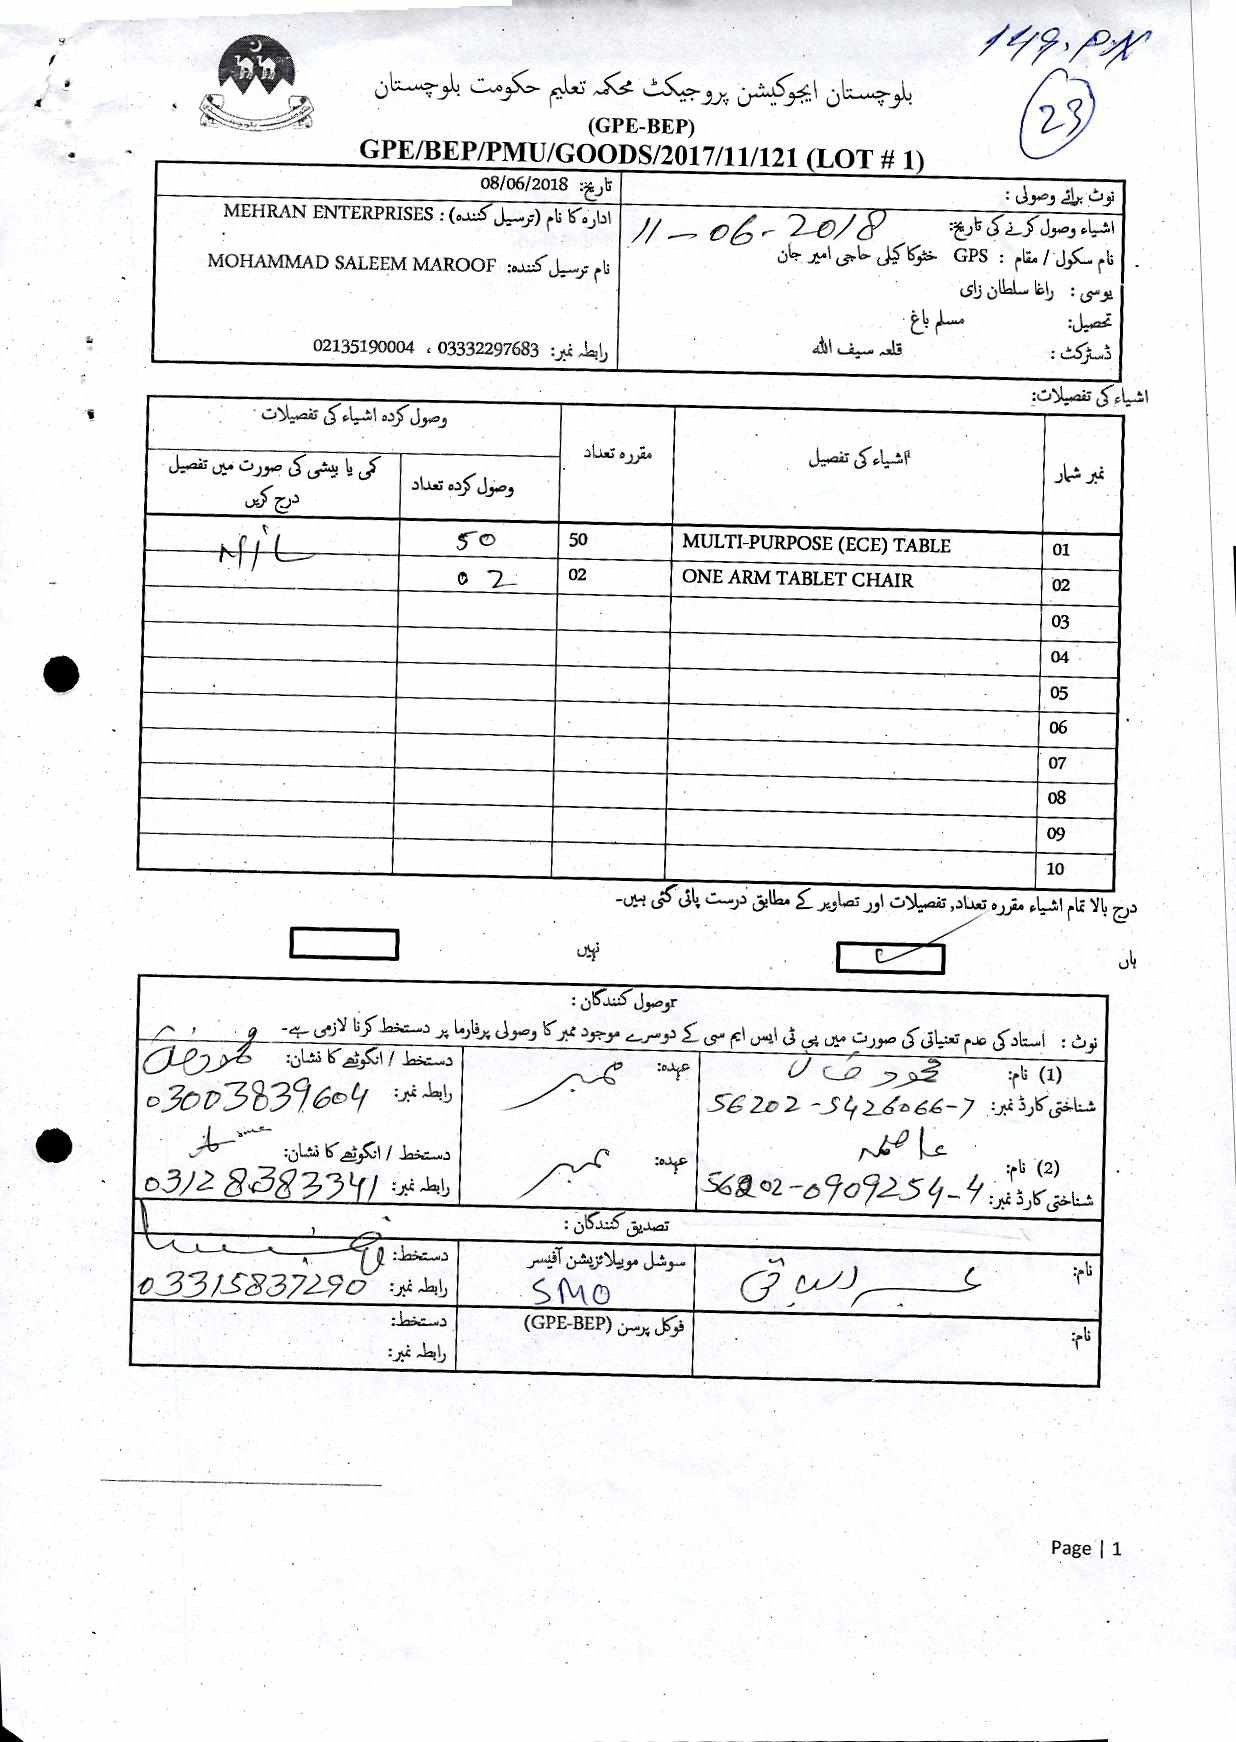 149. P.N
23
بلوچستان ایجوکیشن پروجیکٹ محکمہ تعلیم حکومت بلوچستان
(GPE-BEP)
GPE/BEP/PMU/GOODS/2017/11/121 (LOT # 1)
نوٹ برائے وصولی :
اشیاء وصول کرنے کی تاریخ: 11-06-2018
نام سکول / مقام : GPS خٹوکا کیلی حاجی امیر جان
یوسی : راغا سلطان زای
تحصیل: مسلم باغ
ڈسٹرکٹ : قلعہ سیف اللہ
تاریخ: 08/06/2018
ادارہ کا نام (ترسیل کنندہ) : MEHRAN ENTERPRISES
نام ترسیل کنندہ: MOHAMMAD SALEEM MAROOF
رابطہ نمبر: 03332297683 ، 02135190004
اشیاء کی تفصیلات:
نمبر شمار اشیاء کی تفصیل مقررہ تعداد وصول کردہ اشیاء کی تفصیلات
وصول کردہ تعداد کمی یا بیشی کی صورت میں تفصیل درج کریں
01 MULTI-PURPOSE (ECE) TABLE 50 50 Nil
02 ONE ARM TABLET CHAIR 02 02
03
04
05
06
07
08
09
10
درج بالا تمام اشیاء مقررہ تعداد, تفصیلات اور تصاویر کے مطابق درست پائی گئی ہیں۔
ہاں نہیں
وصول کنندگان :
نوٹ : استاد کی عدم تعنیاتی کی صورت میں پی ٹی ایس ایم سی کے دوسرے موجود ممبر کا وصولی پرفارما پر دستخط کرنا لازمی ہے۔
(1) نام: محمود خان عہدہ: ممبر دستخط / انگوٹھے کا نشان:
شناختی کارڈ نمبر: 56202-5426066-7 رابطہ نمبر: 03003839604
(2) نام: عہدہ: ممبر دستخط / انگوٹھے کا نشان:
شناختی کارڈ نمبر: 56202-0909254-4 رابطہ نمبر: 03128383341
تصدیق کنندگان :
نام: عبدالباقی سوشل موبیلائزیشن آفیسر دستخط:
SMO رابطہ نمبر: 03315837290
نام: فوکل پرسن (GPE-BEP) دستخط:
رابطہ نمبر:
Page | 1